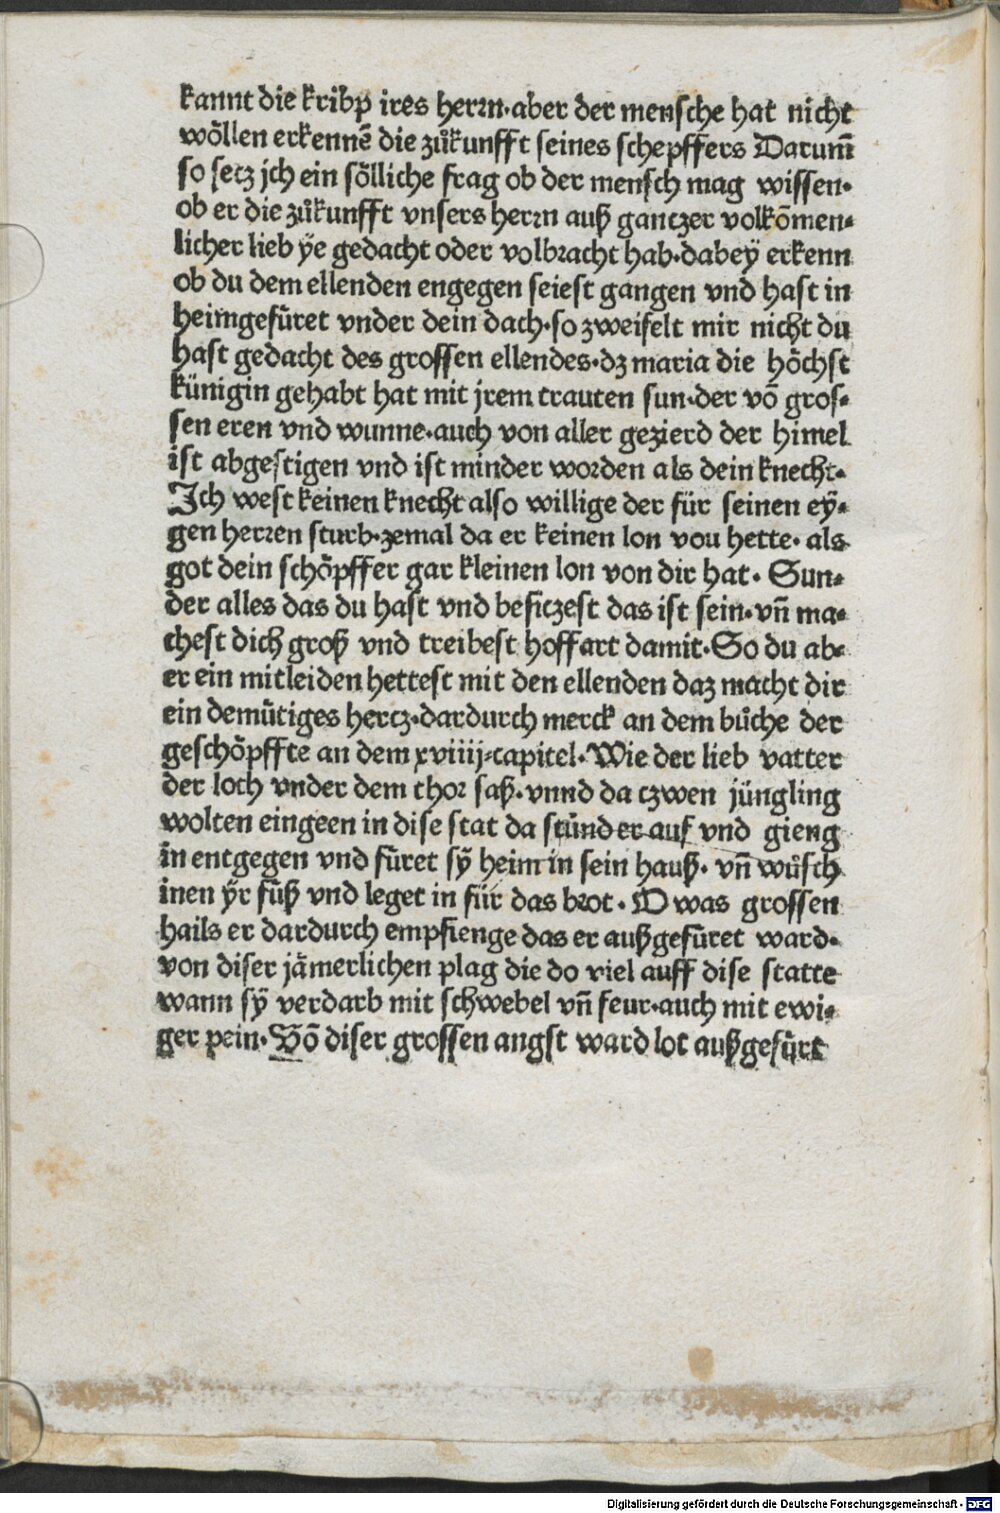 kannt die kribp ires herrn·aber der mensche hat nicht
wöllen erkennē die zůkunfft seines schepffers Darum̄
so setz jch ein sölliche frag ob der mensch mag wissen·
ob er die zůkunfft vnsers herrn auß gantzer volkōmen-
licher lieb ÿe gedacht oder volbracht hab·dabeÿ erkenn
ob du dem ellenden engegen seiest gangen vnd hast in
heimgefüret vnder dein dach·so zweifelt mir nicht du
hast gedacht des grossen ellendes·dz maria die höchst
künigin gehabt hat mit jrem trauten sun·der vō gros-
sen eren vnd wunne·auch von aller gezierd der himel
ist abgestigen vnd ist minder worden als dein knecht·
Jch west keinen knecht also willige der für seinen eÿ-
gen herren sturb·zemal da er keinen lon vou hette· als
got dein schöpffer gar kleinen lon von dir hat· Sun-
der alles das du hast vnd besiczest das ist sein·vn̄ ma-
chest dich groß vnd treibest hoffart damit·So du ab-
er ein mitleiden hettest mit den ellenden daz macht dir
ein demütiges hertz·dardurch merck an dem bůche der
geschöpffte an dem xviiij·capitel·Wie der lieb vatter
der loth vnder dem thor saß·vnnd da czwen jüngling
wolten eingeen in dise stat da stůnd er auf vnd gieng
in entgegen vnd füret sÿ heim in sein hauß· vn̄ wůsch
inen ÿr füß vnd leget in für das brot· O was grossen
hails er dardurch empfienge das er außgefüret ward·
von diser jämerlichen plag die do viel auff dise statte
wann sÿ verdarb mit schwebel vn̄ feur·auch mit ewi-
ger pein·Vō diser grossen angst ward lot außgefürt
Digitalisierung gefördert durch die Deutsche Forschungsgemeinschaft - DFG